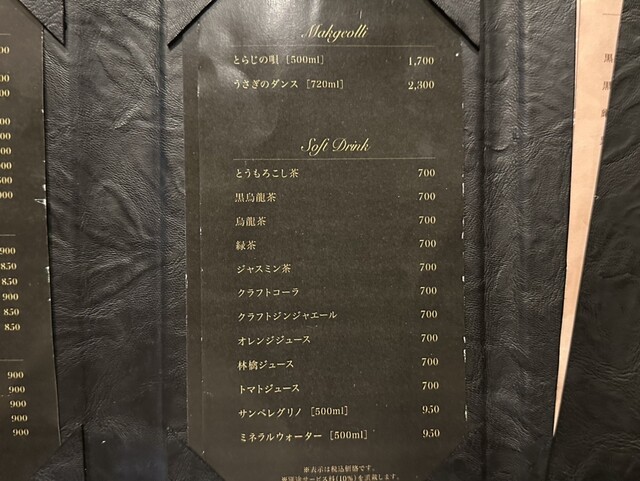 900
850
850
900
850
850
900
900
900
900
900
Makgeolli
とらじの唄 [500ml] 1,700
うさぎのダンス [720ml] 2,300
Soft Drink
とうもろこし茶 700
黒烏龍茶 700
烏龍茶 700
緑茶 700
ジャスミン茶 700
クラフトコーラ 700
クラフトジンジャエール 700
オレンジジュース 700
林檎ジュース 700
トマトジュース 700
サンペレグリノ [500ml] 950
ミネラルウォーター [500ml] 950
※表示は税込価格です。
※別途サービス料(10%)を頂戴します。